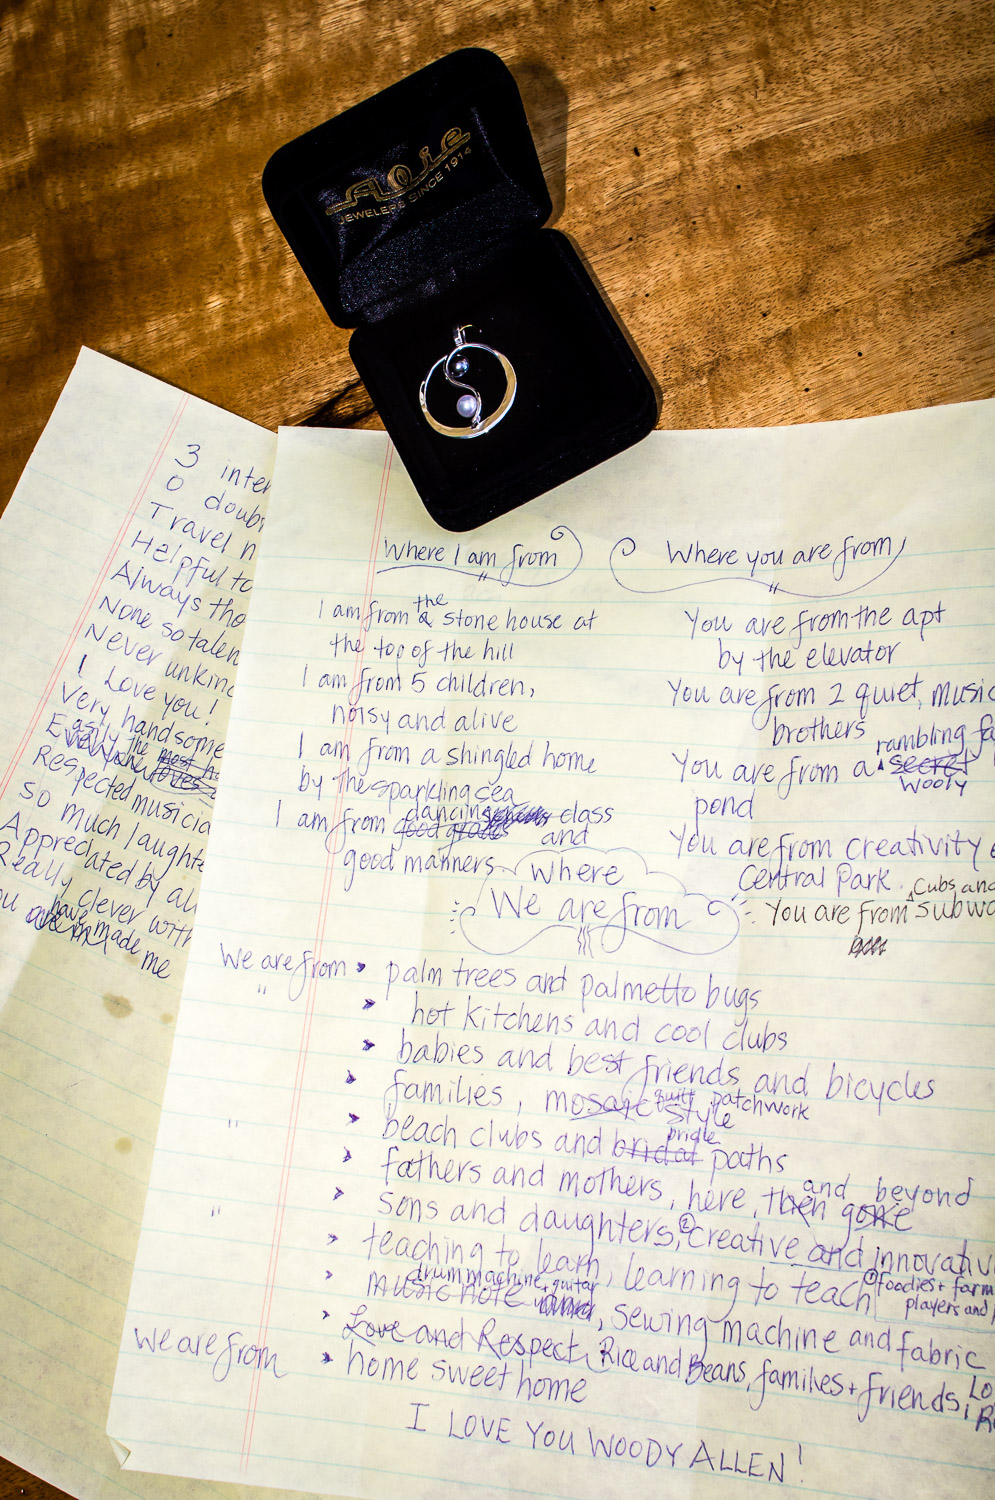 JEWELERS SINCE 1914
3
0
Travel
Helpful to
Always
None so
Never
I Love you!
Very handsome
Easily the most
Respected
So much
Appreciated by
Really clever with
have made me
Where I am from
I am from the stone house at
the top of the hill
I am from 5 children,
noisy and alive
I am from a shingled home
by the sparkling sea
I am from good grades dancing class
and
good manners
Where you are from
You are from the apt
by the elevator
You are from 2 quiet,
brothers
rambling
You are from a secret
wooly
pond
You are from creativity
Central Park. Cubs and
You are from
Where
We are from
We are from palm trees and palmetto bugs
" hot kitchens and cool clubs
babies and best friends and bicycles
families, mosaic quilt patchwork
style
" beach clubs and bridal bridle paths
fathers and mothers, here, then gone and beyond
" sons and daughters, 2 creative and
teaching to learn, learning to teach
1 foodies +
players and
drum machine, guitar
music note, sewing machine and fabric
Love and Respect, Rice and Beans, families + friends,
We are from home sweet home
I LOVE YOU WOODY ALLEN!